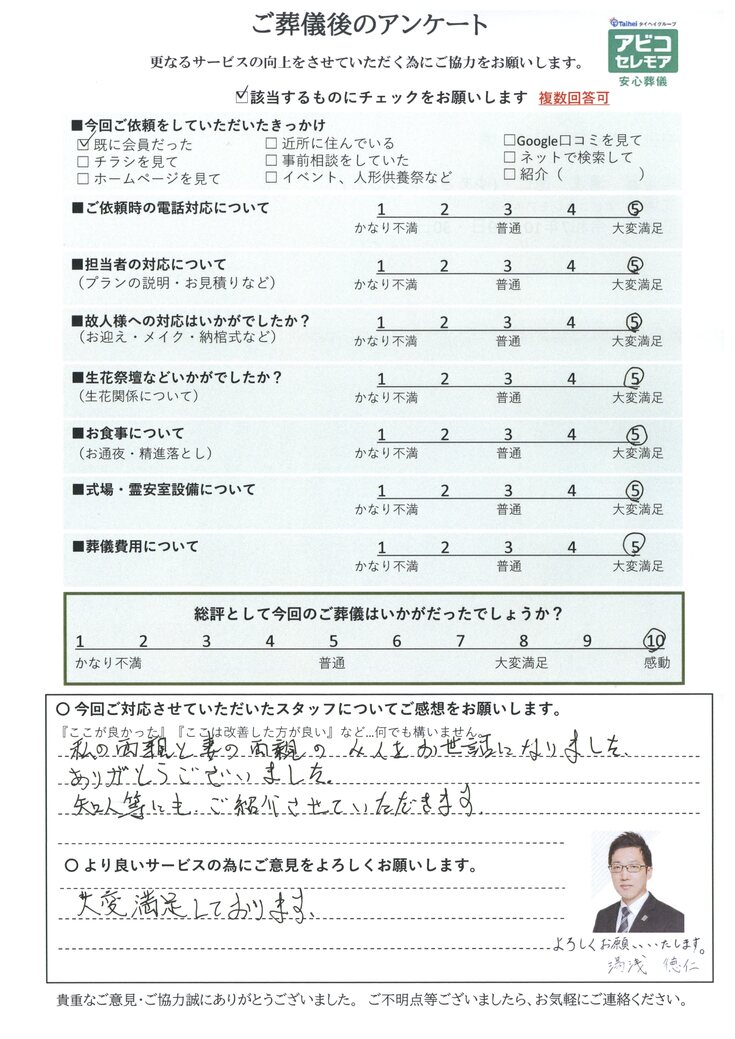 ご葬儀後のアンケート
Taihei タイヘイグループ
アビコ
セレモア
安心葬儀
更なるサービスの向上をさせていただく為にご協力をお願いします。
☑該当するものにチェックをお願いします 複数回答可
■今回ご依頼をしていただいたきっかけ
☑既に会員だった □ 近所に住んでいる □Google口コミを見て
□ チラシを見て □ 事前相談をしていた □ ネットで検索して
□ ホームページを見て □ イベント、人形供養祭など □ 紹介（ ）
■ご依頼時の電話対応について 1 2 3 4 5
かなり不満 普通 大変満足
■担当者の対応について 1 2 3 4 5
（プランの説明・お見積りなど） かなり不満 普通 大変満足
■故人様への対応はいかがでしたか？ 1 2 3 4 5
（お迎え・メイク・納棺式など） かなり不満 普通 大変満足
■生花祭壇などいかがでしたか？ 1 2 3 4 5
（生花関係について） かなり不満 普通 大変満足
■お食事について 1 2 3 4 5
（お通夜・精進落とし） かなり不満 普通 大変満足
■式場・霊安室設備について 1 2 3 4 5
かなり不満 普通 大変満足
■葬儀費用について 1 2 3 4 5
かなり不満 普通 大変満足
総評として今回のご葬儀はいかがだったでしょうか？
1 2 3 4 5 6 7 8 9 10
かなり不満 普通 大変満足 感動
〇 今回ご対応させていただいたスタッフについてご感想をお願いします。
『ここが良かった』『ここは改善した方が良い』など…何でも構いません。
私の両親と妻の両親の4人をお世話になりました、
ありがとうございました。
知人等にも、ご紹介させていただきます。
〇 より良いサービスの為にご意見をよろしくお願いします。
大変満足しております、
よろしくお願いいたします。
湯浅 徳仁
貴重なご意見・ご協力誠にありがとうございました。 ご不明点等ございましたら、お気軽にご連絡ください。